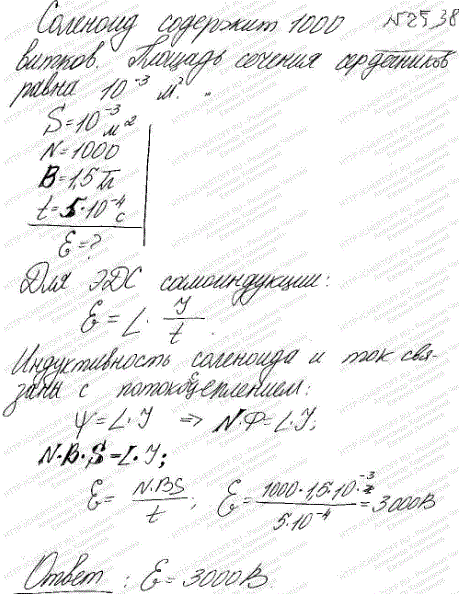 Соленоид содержит 1000 №25,38
витков. Площадь сечения сердечников
равна 10⁻³ м².
S=10⁻³ м²
N=1000
B=1,5 Тл
t=5·10⁻⁴ с
Ɛ=?
Для ЭДС самоиндукции:
Ɛ = L· J/t.
Индуктивность соленоида и ток свя-
заны с потокосцеплением:
Ψ=L·J ⇒ N·Φ=L·J;
N·B·S=L·J;
Ɛ = N·BS/t; Ɛ = 1000·1,5·10⁻³/5·10⁻⁴ = 3000В
Ответ: Ɛ=3000В.